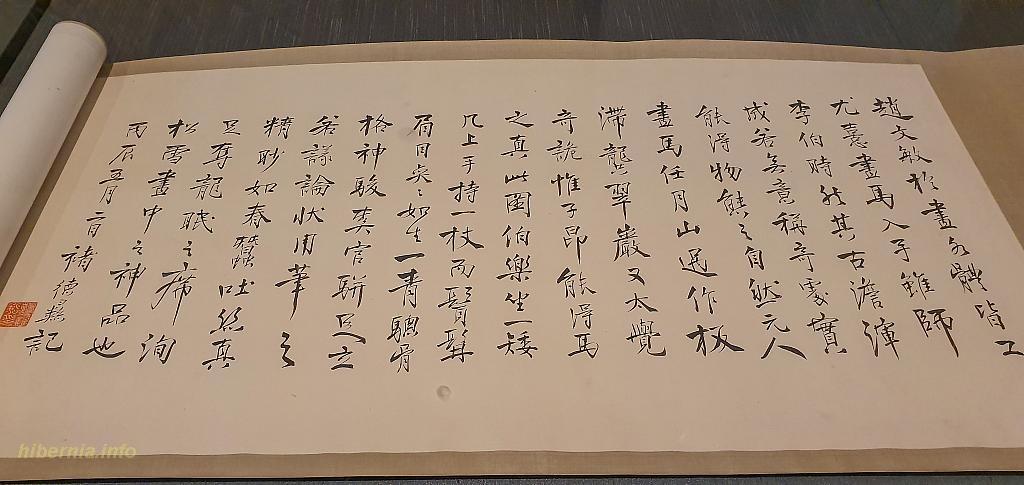 趙文敏於畫各體皆工
尤善畫馬入手雖師
李伯時然其古澹渾
成若無意稱奇處實
能得物態之自然元人
畫馬任月山過作板
滯龔翠巖又太覺
奇詭惟子昂能得馬
之真此圖伯樂坐一矮
几上手持一杖而鬚髯
眉目奕奕如生一青驄骨
格神駿奚官駢足立
若議論狀用筆之
精妙如春蠶吐絲真
足奪龍眠之席洵
松雪畫中之神品也
丙辰五月二日褚德彝記
hibernia.info